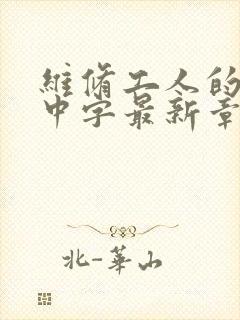 維脩工人的
中字最新章
北-華山